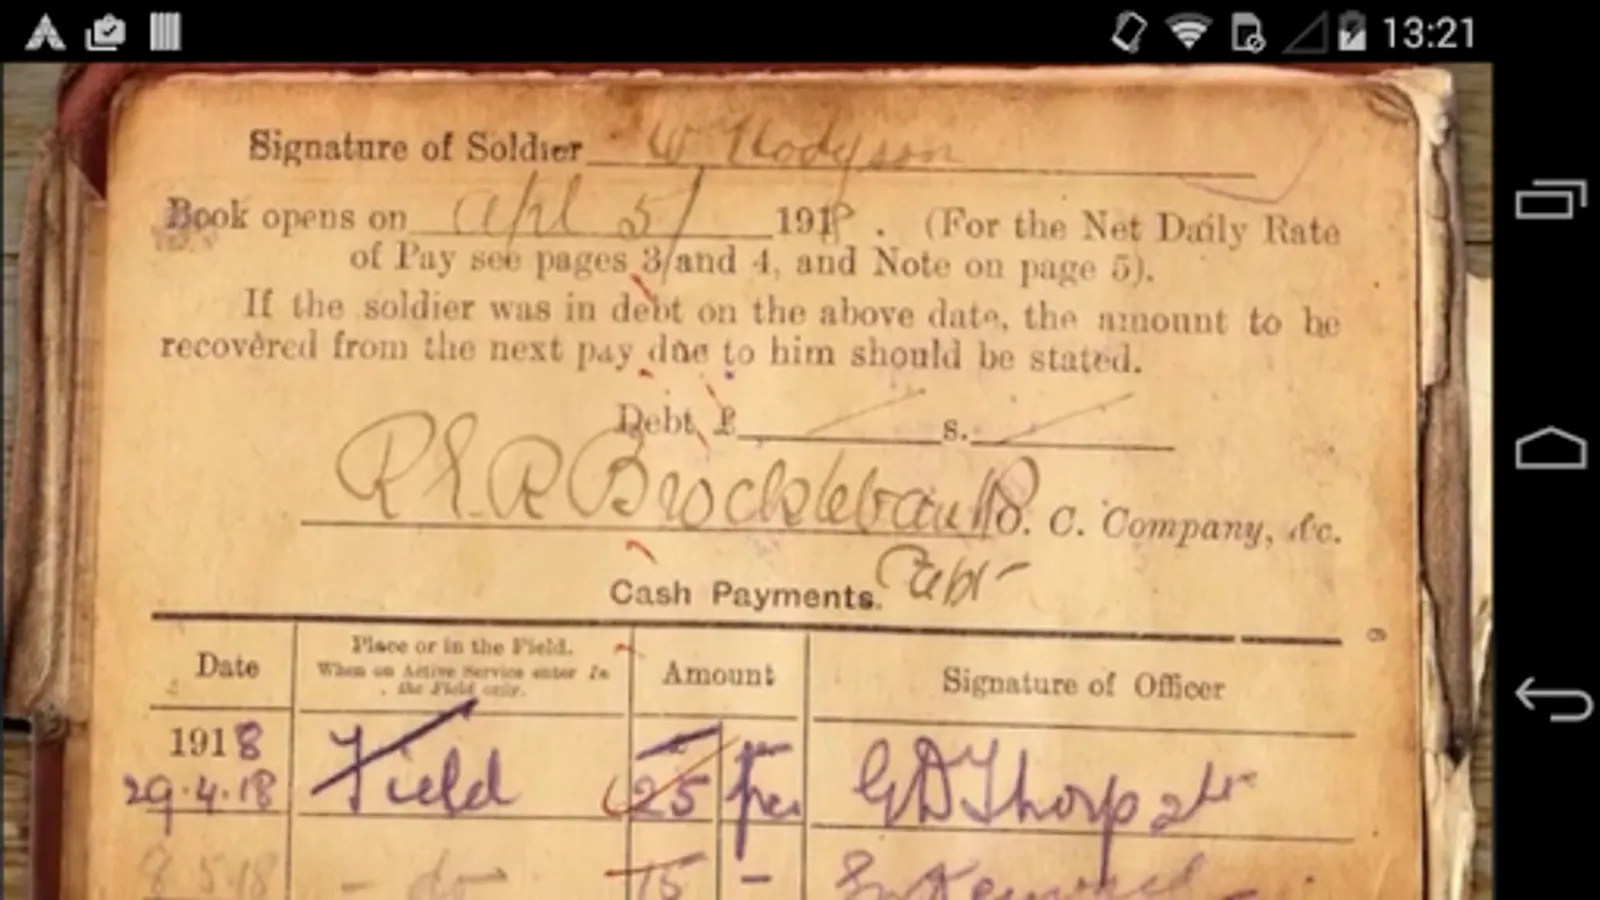 13:21
Signature of Soldier W Hodgson
Book opens on Apl 5/ 1918. (For the Net Daily Rate
of Pay see pages 3 and 4, and Note on page 5).
If the soldier was in debt on the above date, the amount to be
recovered from the next pay due to him should be stated.
Debt £ s.
R L R Brocklebank O. C. Company, &c.
Capt
Cash Payments.
9
Date Place or in the Field. Amount Signature of Officer
When on Active Service enter In
the Field only.
1918
29.4.18 Field 25 frs G D Thorp 2Lt
8.5.18 - do - 15 -